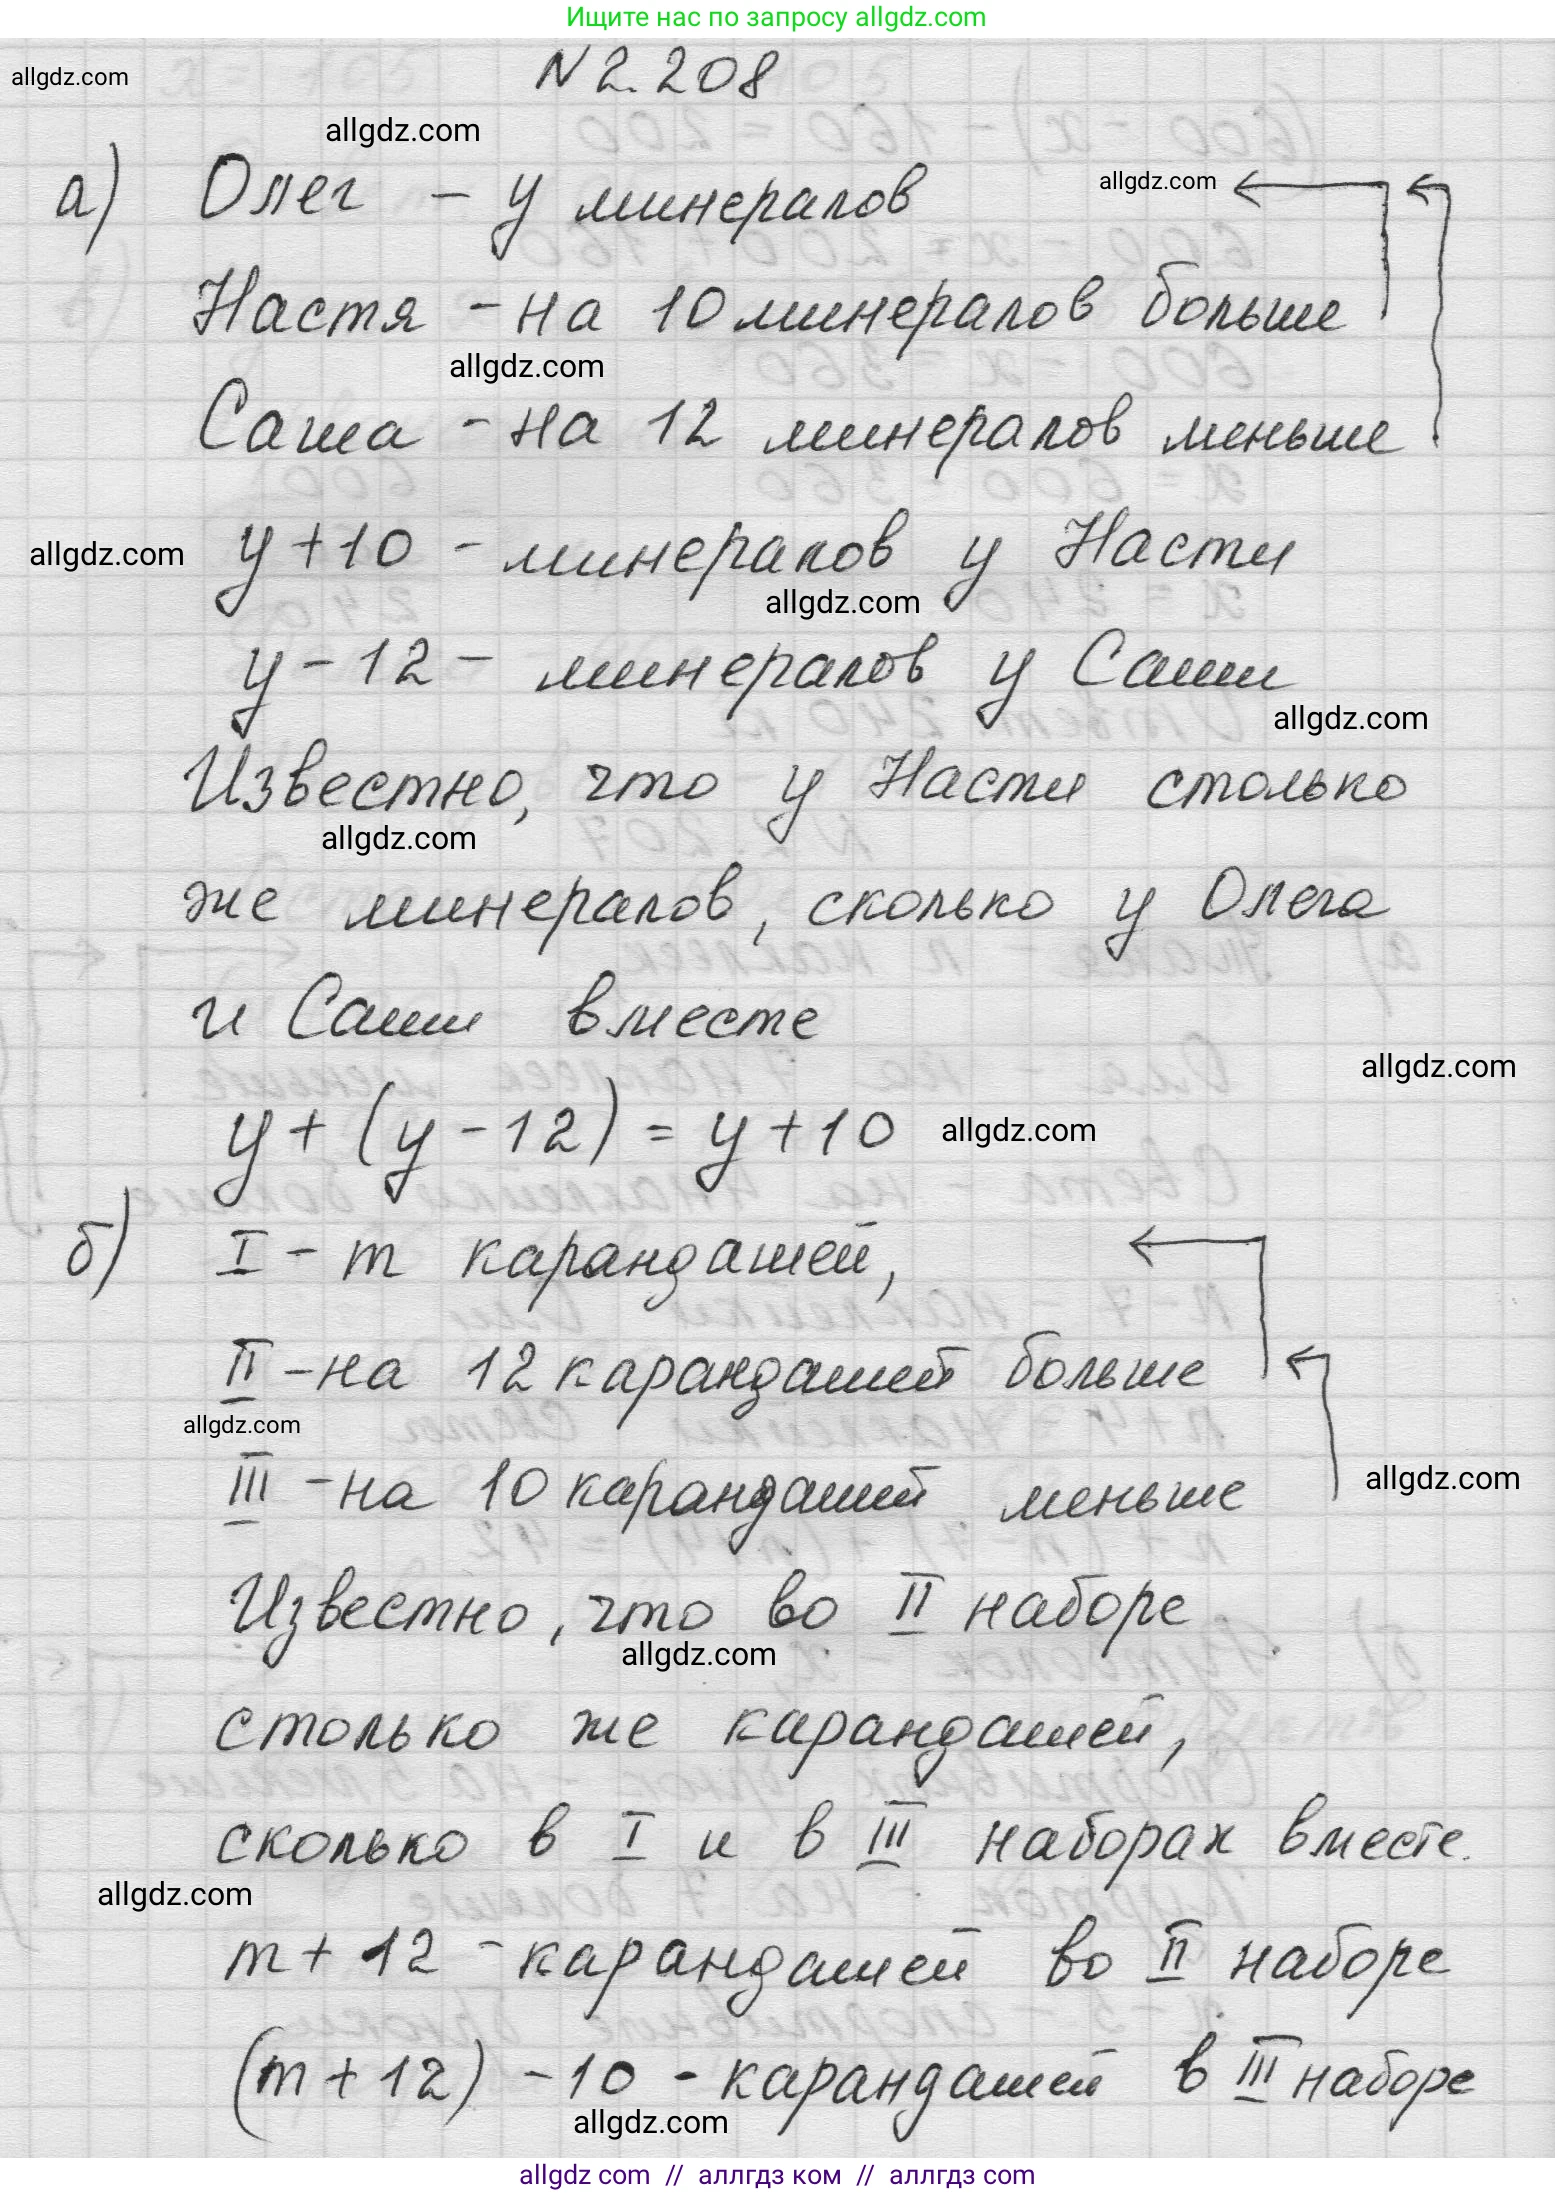 Ищите нас по запросу allgdz.com
allgdz.com
N 2.208
allgdz.com
а) Олег - y минералов
allgdz.com
Настя - на 10 минералов больше
allgdz.com
Саша - на 12 минералов меньше
allgdz.com
y + 10 - минералов у Насти
allgdz.com
y - 12 - минералов у Саши
allgdz.com
Известно, что у Насти столько
allgdz.com
же минералов, сколько у Олега
и Саши вместе
allgdz.com
y + (y - 12) = y + 10
allgdz.com
б) I - m карандашей,
II - на 12 карандашей больше
allgdz.com
III - на 10 карандашей меньше
allgdz.com
Известно, что во II наборе
allgdz.com
столько же карандашей,
сколько в I и в III наборах вместе.
allgdz.com
m + 12 - карандашей во II наборе
(m + 12) - 10 - карандашей в III наборе
allgdz.com
allgdz com // аллгдз ком // аллгдз com